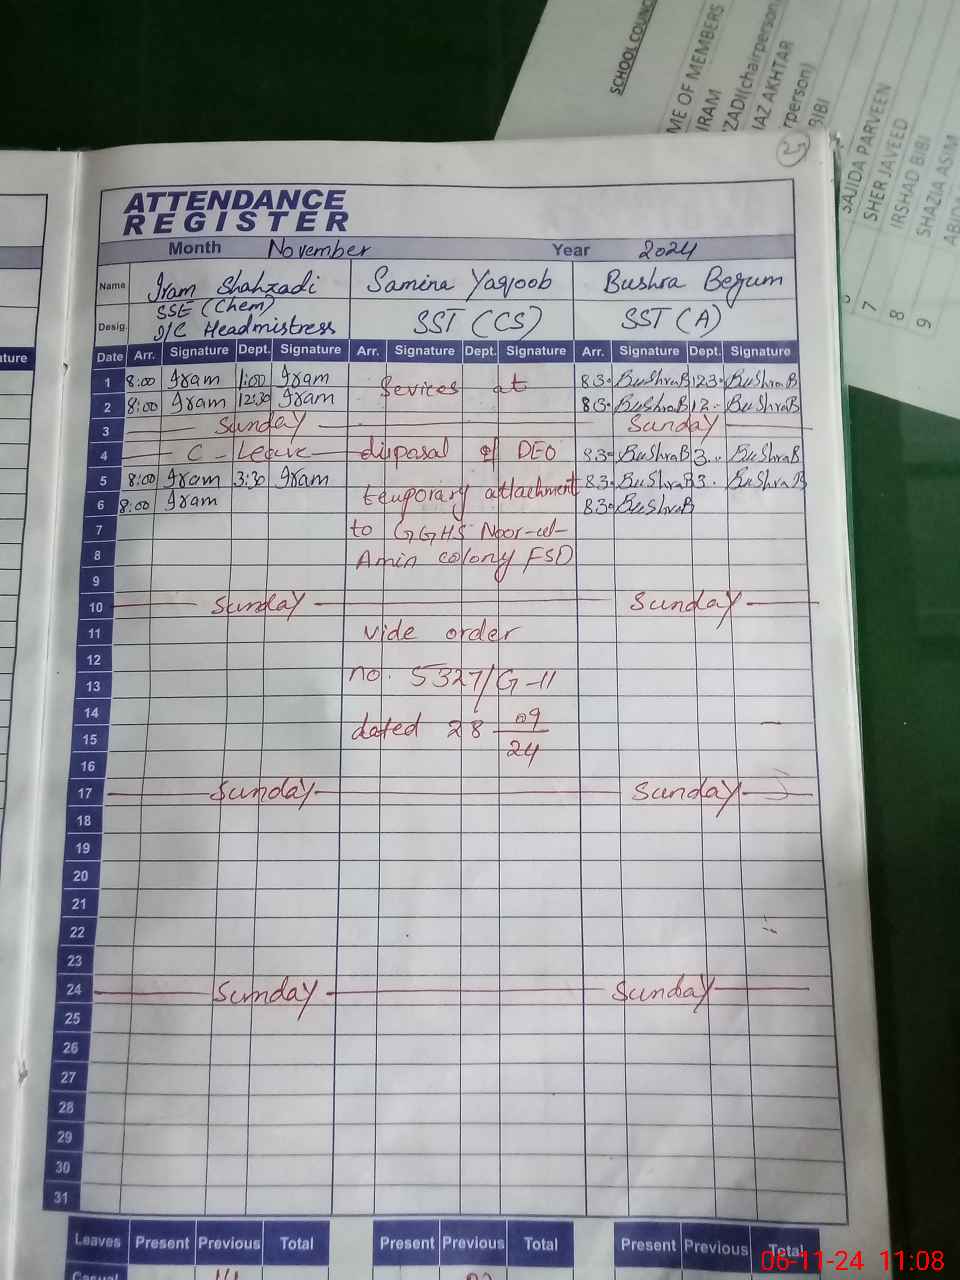 SCHOOL COUNC
ME OF MEMBERS
IRAM
ZADI(chairperson
IAZ AKHTAR
rperson)
BIBI
SAJIDA PARVEEN
7 SHER JAVEED
8 IRSHAD BIBI
9 SHAZIA ASIM
ABIDA
ATTENDANCE
REGISTER
Month November Year 2024
Name Iram Shahzadi Samina Yaqoob Bushra Begum
Desig. SSE (Chem) SST (CS) SST (A)
I/C Headmistress
ture Date Arr. Signature Dept. Signature Arr. Signature Dept. Signature Arr. Signature Dept. Signature
1 8:00 Iram 1:00 Iram Sevices at 83. BuShraB 123. BuShraB
2 8:00 Iram 12:30 Iram 83. BuShraB 12. BuShraB
3 Sunday Sunday
4 C - Leave disposal of DEO 83. BuShraB 3.. BuShraB
5 8:00 Iram 3:30 Iram 83. BuShraB 3. BuShraB
6 8:00 Iram temporary attachment 83. BuShraB
7 to GGHS Noor-ul-
8 Amin colony FSD
9
10 Sunday Sunday
11 vide order
12
13 no. 5327/G-11
14
15 dated 28 09/24
16
17 Sunday Sunday
18
19
20
21
22
23
24 Sunday Sunday
25
26
27
28
29
30
31
Leaves Present Previous Total Present Previous Total Present Previous Total
Casual
06-11-24 11:08